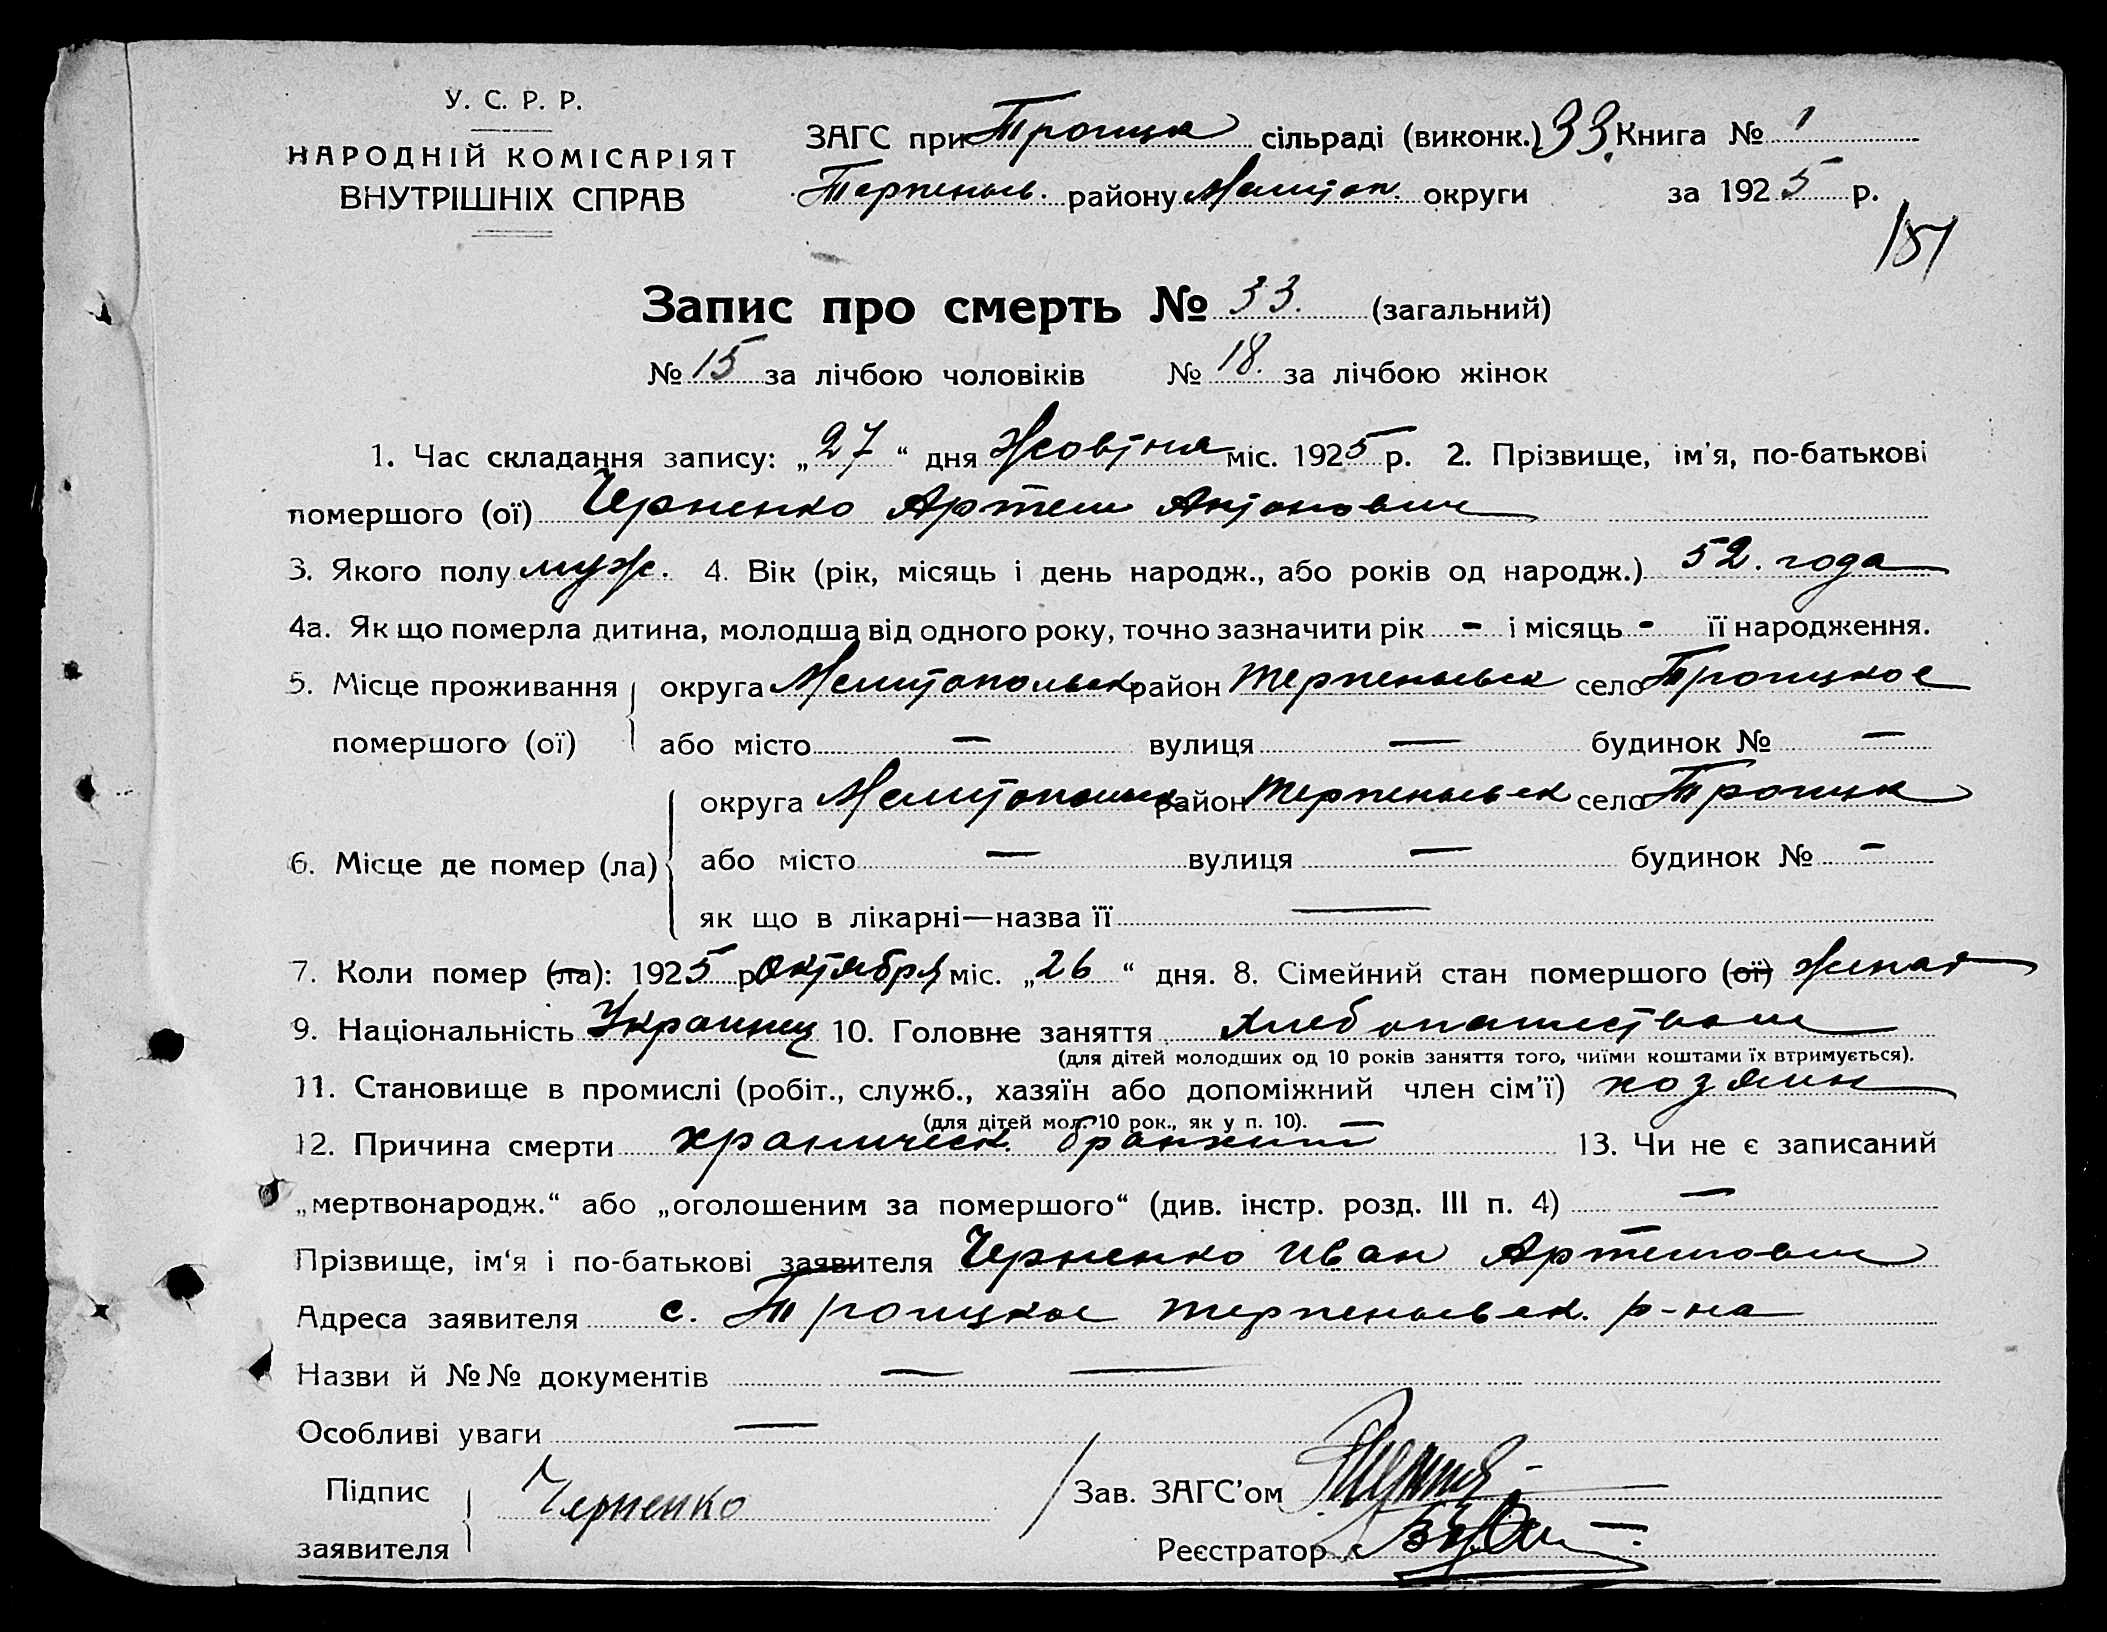 У. С. Р. Р.
НАРОДНІЙ КОМІСАРІЯТ
ВНУТРІШНІХ СПРАВ
ЗАГС при Троицк сільраді (виконк.) 33. Книга № 1
Терпеньев. району Мелитоп. округи за 1925 р.
151
Запис про смерть № 33. (загальний)
№ 15 за лічбою чоловіків № 18. за лічбою жінок
1. Час складання запису: „27“ дня Жовтня міс. 1925 р. 2. Прізвище, ім'я, по-батькові
помершого (ої) Черненко Артем Антонович
3. Якого полу муж. 4. Вік (рік, місяць і день народж., або років од народж.) 52. года
4а. Як що померла дитина, молодша від одного року, точно зазначити рік - і місяць - її народження.
5. Місце проживання округа Мелитопольск район Терпеньевск село Троицкое
помершого (ої) або місто — вулиця — будинок № —
округа Мелитопольск район Терпеньевск село Троицк
6. Місце де помер (ла) або місто — вулиця — будинок № —
як що в лікарні—назва її —
7. Коли помер (ла): 1925 р октября міс. „26“ дня. 8. Сімейний стан помершого (ої) женат
9. Національність Украинец 10. Головне заняття Хлебопашеством
(для дітей молодших од 10 років заняття того, чиїми коштами їх втримується).
11. Становище в промислі (робіт., служб., хазяїн або допоміжний член сім'ї) хозяин
(для дітей мол. 10 рок., як у п. 10).
12. Причина смерти храническ. бронхит 13. Чи не є записаний
„мертвонародж.“ або „оголошеним за помершого“ (див. інстр. розд. III п. 4) —
Прізвище, ім'я і по-батькові заявителя Черненко Иван Артемович
Адреса заявителя с. Троицкое терпеньевск. р-на
Назви й №№ документів — —
Особливі уваги —
Підпис
заявителя Черненко
Зав. ЗАГС'ом
Реєстратор